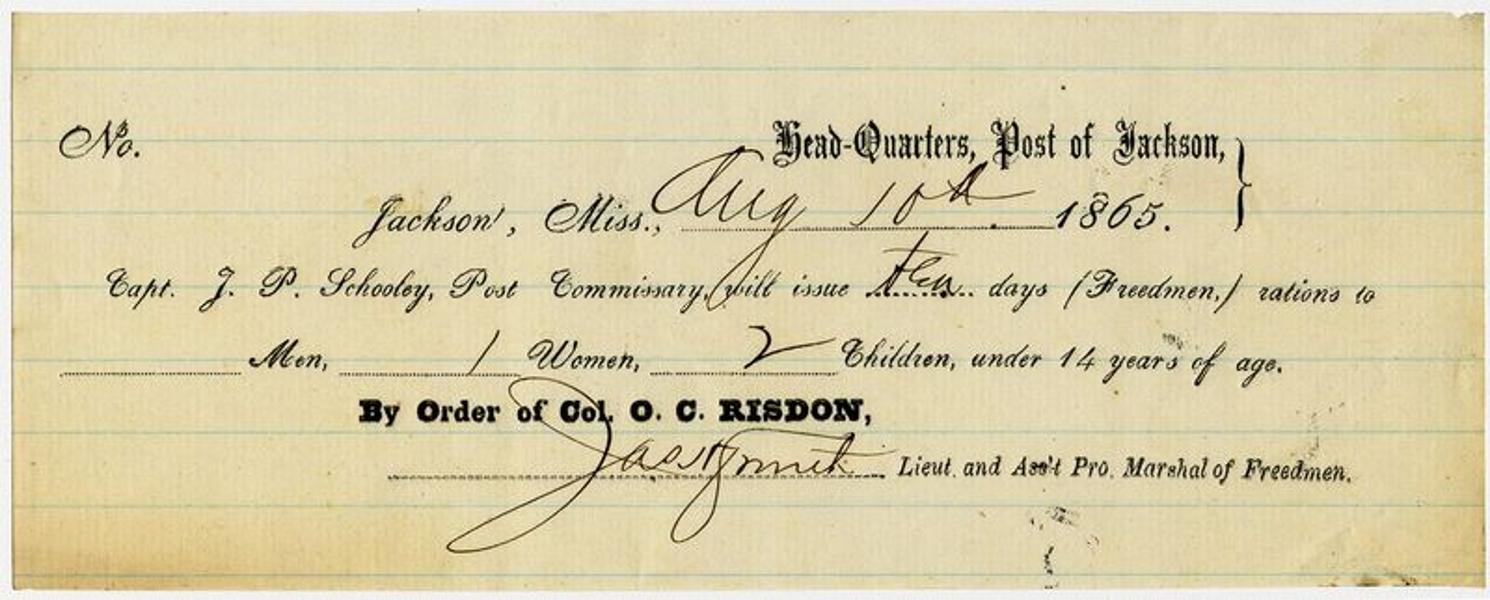 No.
Head-Quarters, Post of Jackson,
Jackson, Miss., Aug 10th 1865.
Capt. J. P. Schooley, Post Commissary, will issue ten days (Freedmen,) rations to
Men, 1 Women, 2 Children, under 14 years of age.
By Order of Col. O. C. RISDON,
Lieut. and Ass't Pro. Marshal of Freedmen.